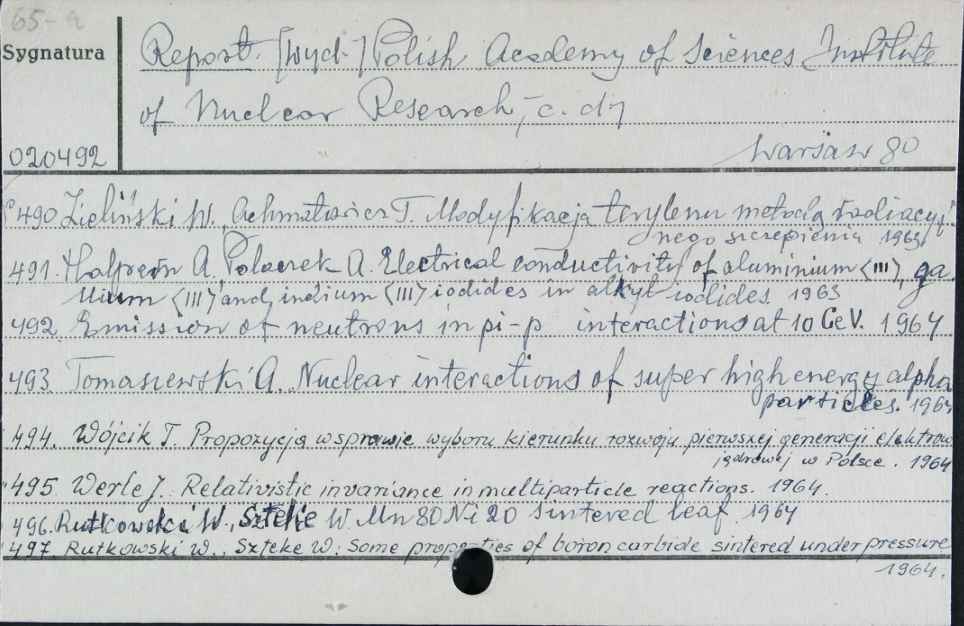 65-a
Sygnatura
Report. [Wyd.] Polish Academy of Sciences Institute
of Nuclear Research, - c. d. 7
020492
Warsaw 80
490 Zieliński W., Achmatowicz T. Modyfikacja terylenu metodą radiacyj-
nego szczepienia 1963
491. Halpern A. Polaczek A. Electrical conductivity of aluminium (III), ga
llium (III) and indium (III) iodides in alkyl iodides. 1963
492. Emission of neutrons in pi-p interactions at 10 GeV. 1964
493. Tomaszewski A. Nuclear interactions of super high energy alpha
particles. 1964
494. Wójcik T. Propozycja w sprawie wyboru kierunku rozwoju pierwszej generacji elektrow
jądrowej w Polsce. 1964
495. Werle J. Relativistic invariance in multiparticle reactions. 1964.
496. Rutkowski W., Szteke W. Mn 80 Ni 20 sintered leaf 1964
497. Rutkowski W., Szteke W: Some properties of boron carbide sintered under pressure
1964.